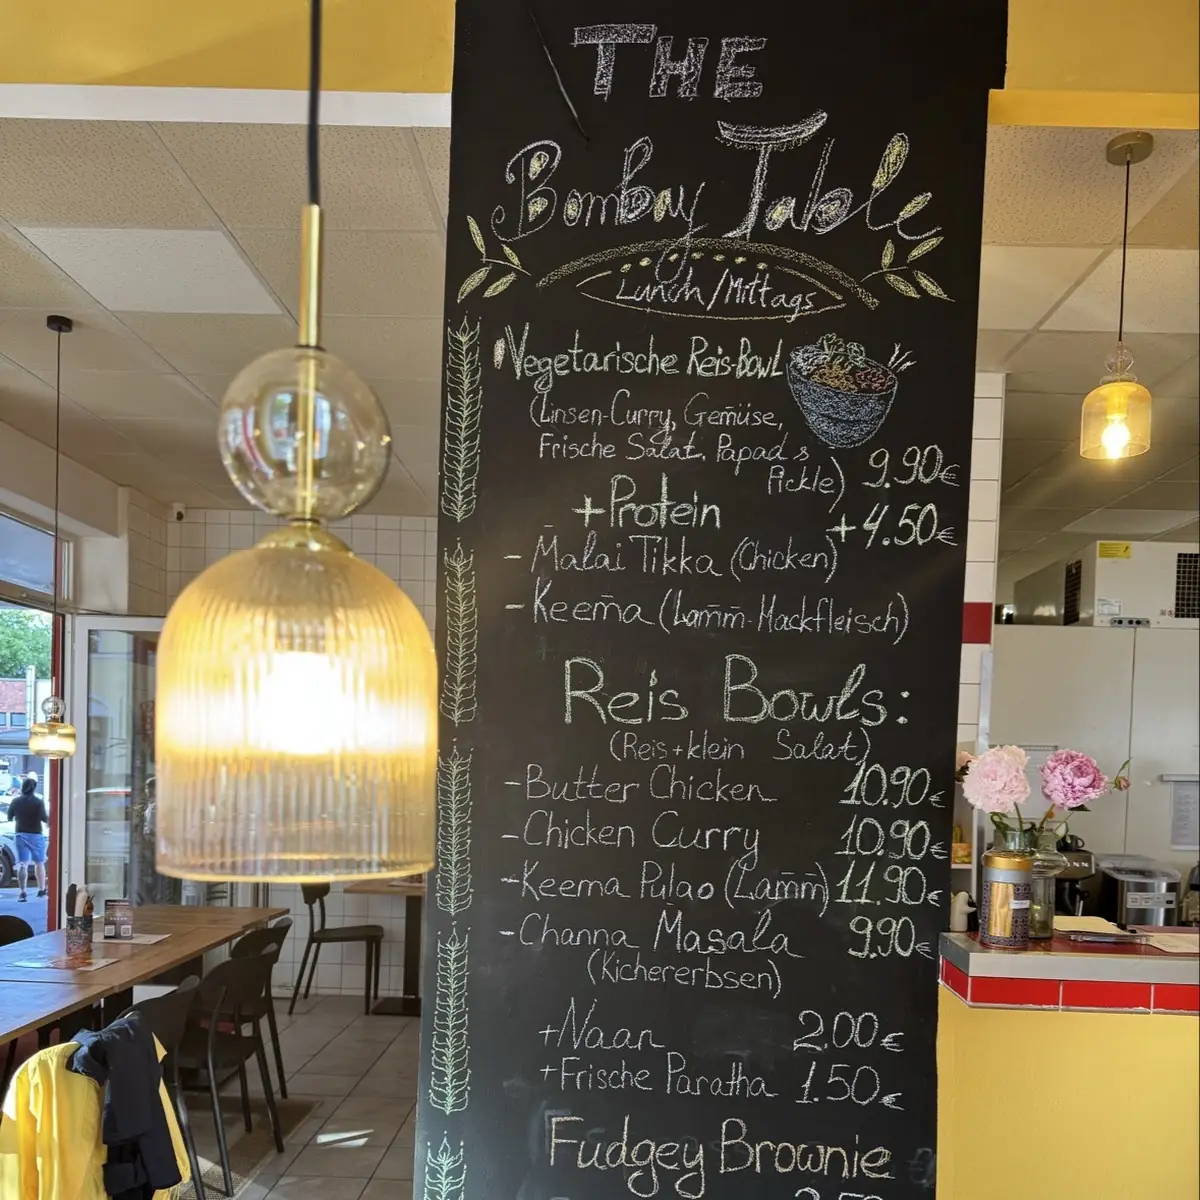 THE
Bombay Table
Lunch/Mittags
Vegetarische Reis-Bowl
(Linsen-Curry, Gemüse,
Frische Salat, Papad &
Pickle) 9.90€
+Protein +4.50€
- Malai Tikka (Chicken)
- Keema (Lamm-Hackfleisch)
Reis Bowls:
(Reis+klein Salat)
-Butter Chicken 10.90€
-Chicken Curry 10.90€
-Keema Pulao (Lamm) 11.90€
-Channa Masala 9.90€
(Kichererbsen)
+Naan 2.00€
+Frische Paratha 1.50€
Fudgey Brownie